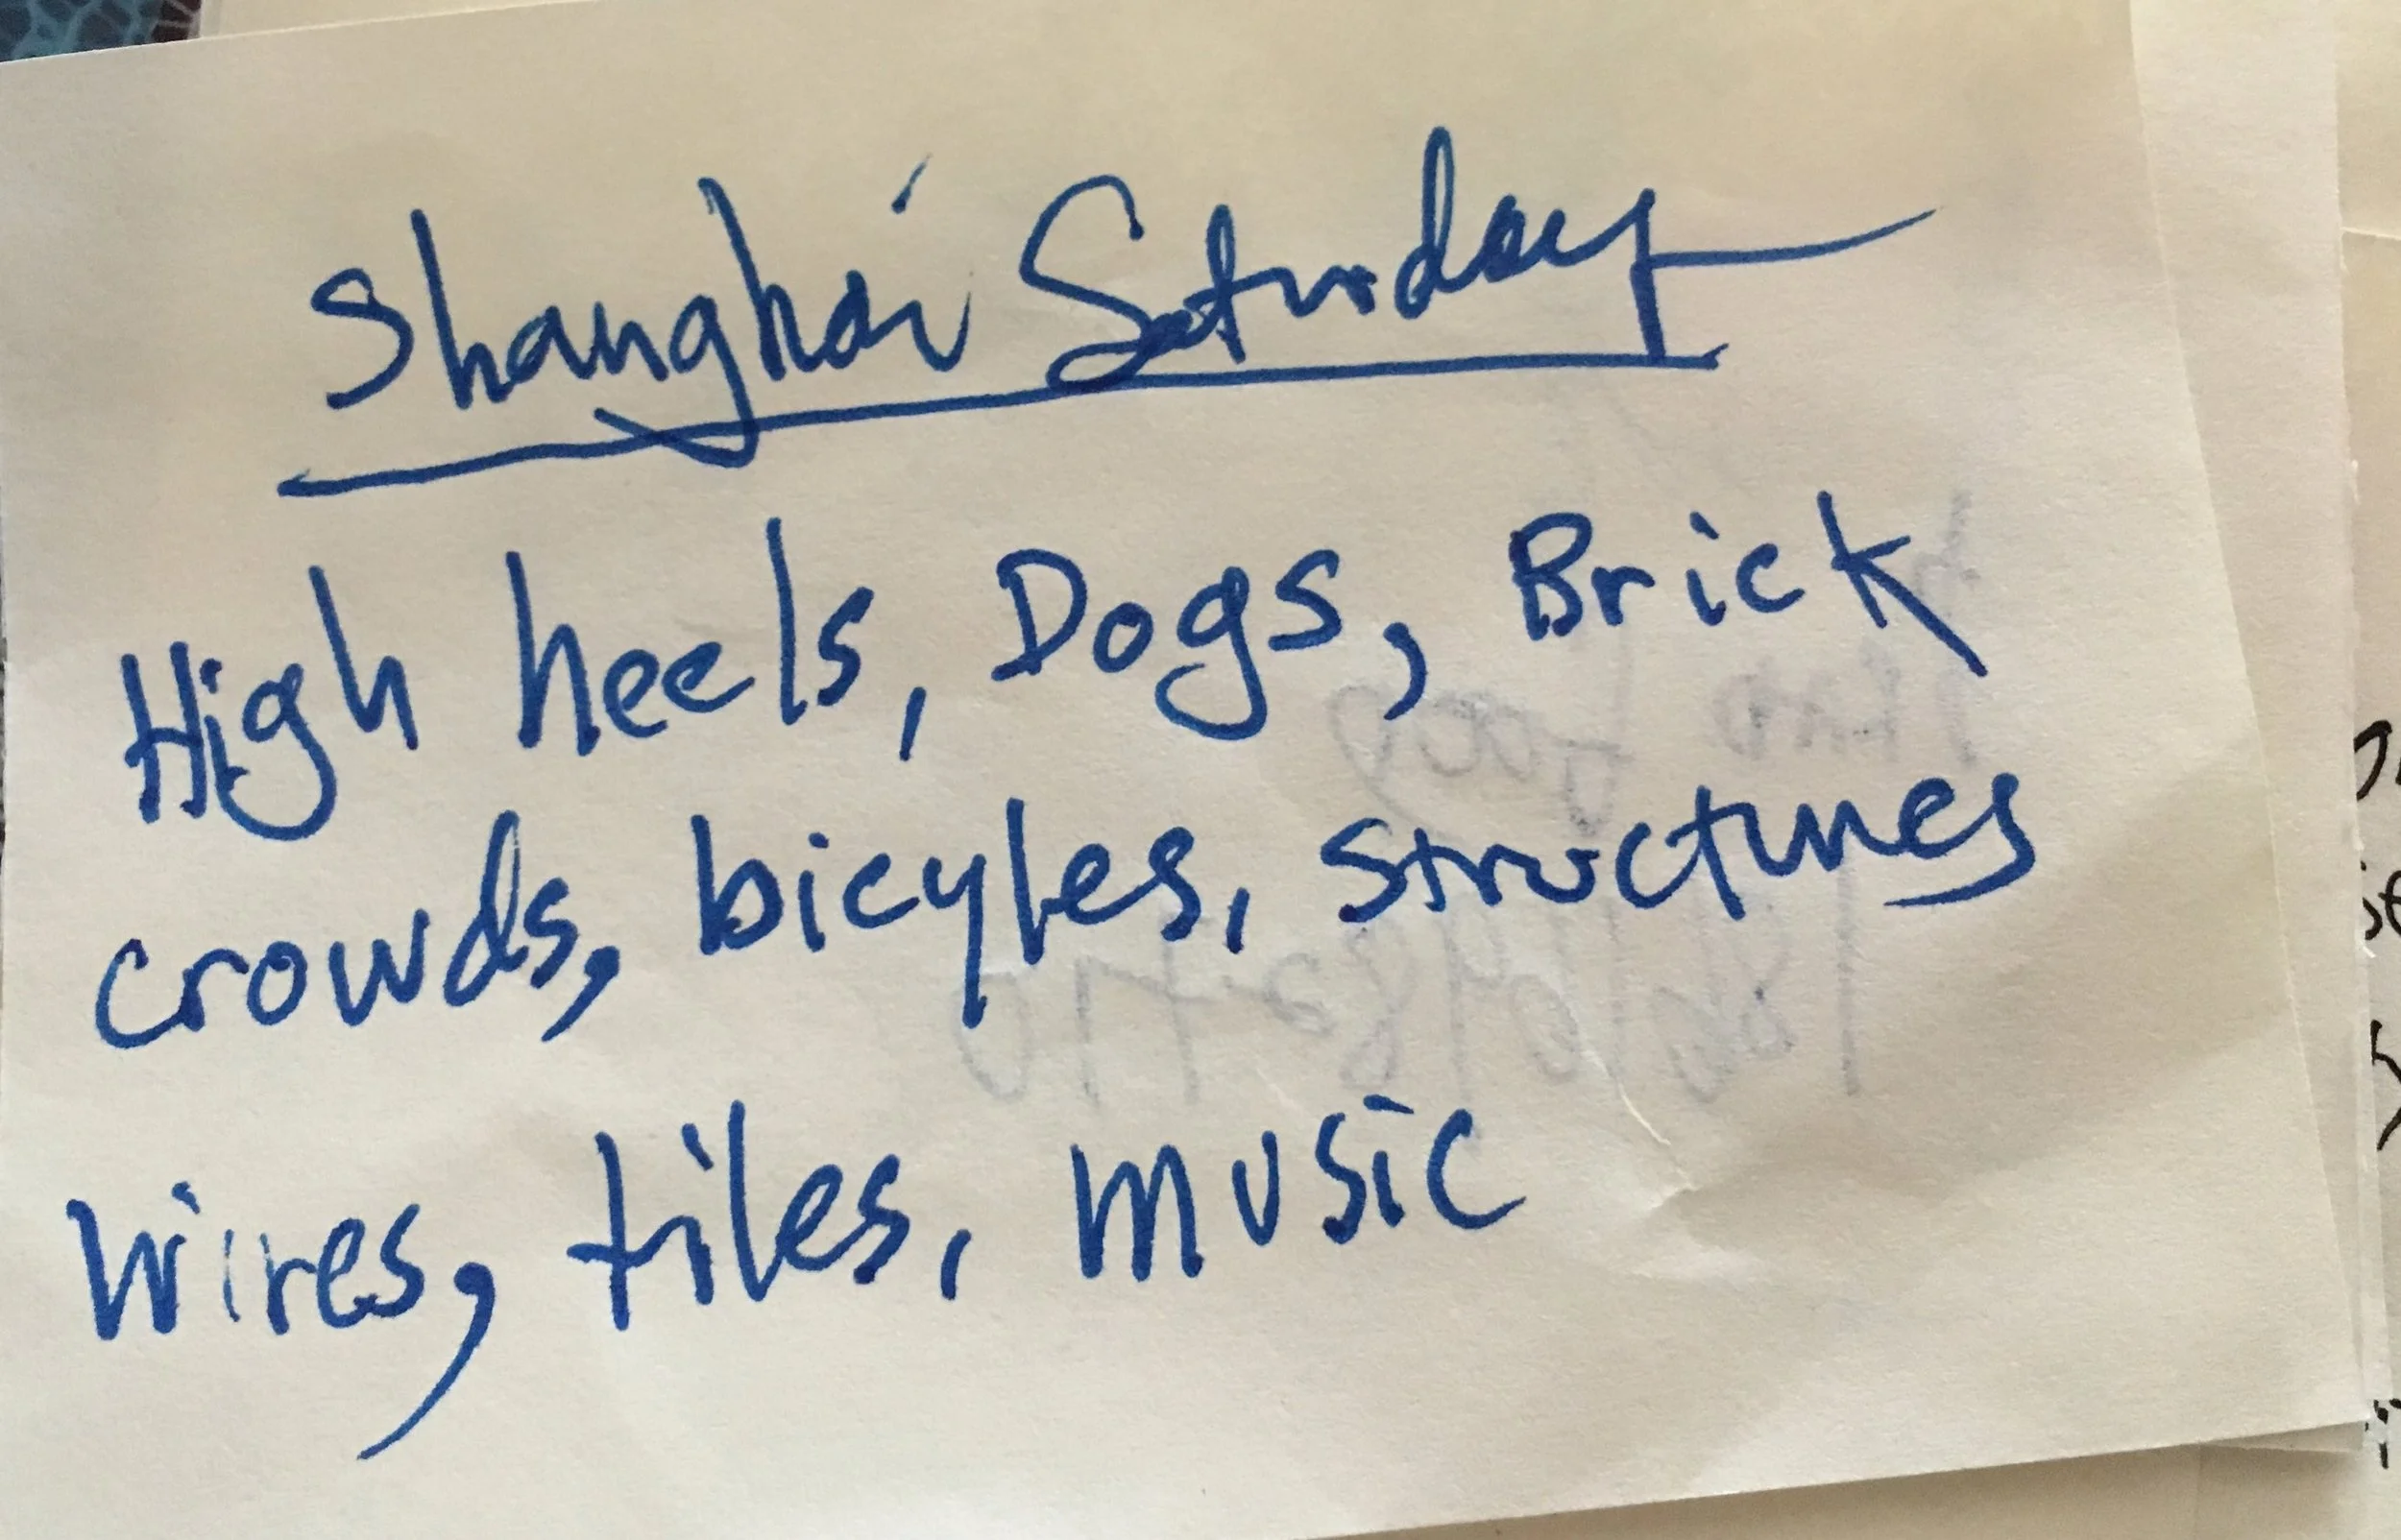 Shanghai Saturday
High heels, Dogs, Brick
crowds, bicyles, structures
wires, tiles, music